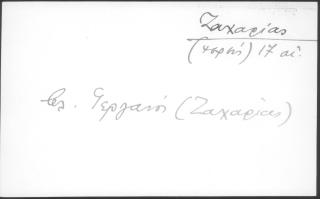 Ζαχαρίας
(ιερεύς) 17 αι.
βλ. Γεργανό (Ζαχαρίας)